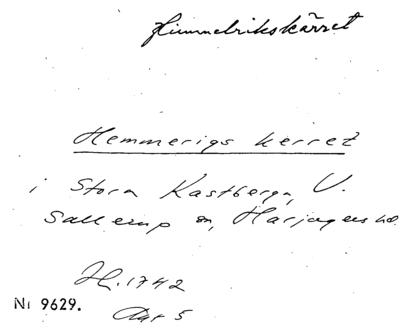 Himmelrikskärret
Hemmerigs kerret
i Stora Kastberga, V.
Sallerup sn, Harjagers hd.
H. 1742
Nr 9629.